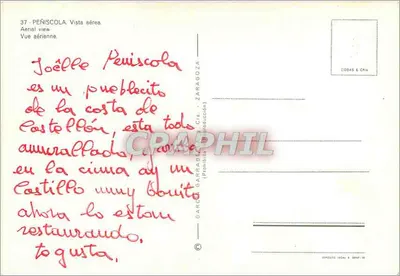 37 - PEÑISCOLA. Vista aérea.
Aerial view.
Vue aérienne.
Joëlle Peniscola
es un pueblecito
de la costa de
Castellón, esta todo
amurallado, y
en la cima ay un
Castillo muy bonito
ahora lo estan
restaurando.
te gusta.
CPARPHIL
GARCIA GARRABELLA Y Cia. - ZARAGOZA
(Prohibida la reproducción)
©